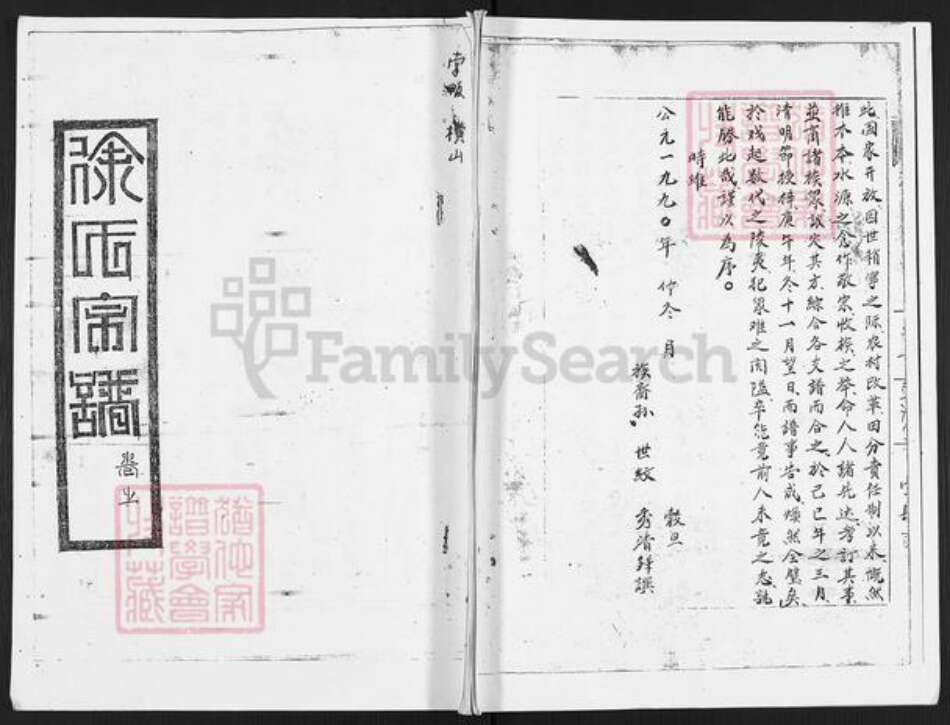 此國家开放因世稍寧之际农村改革田分責任制以来慨然
推木本水源之念作敬宗收族之举命人人諸先述考訂其事
並商諸族眾詠尖其方綜合各支譜而合之於己巳年之三月
清明節授梓庚午年冬十一月望日而譜事告成燦然全璧矣
於戏起数代之陵夷犯眾难之閧隘卒能竟前人未竟之志孰
能勝此哉謹以為序。
時維
公元一九九〇年 仲冬 月 穀旦
族裔孙 世紋 秀清 拜譔
横山
徐氏宗譜
卷之
猶他家
譜學會
收藏
FamilySearch